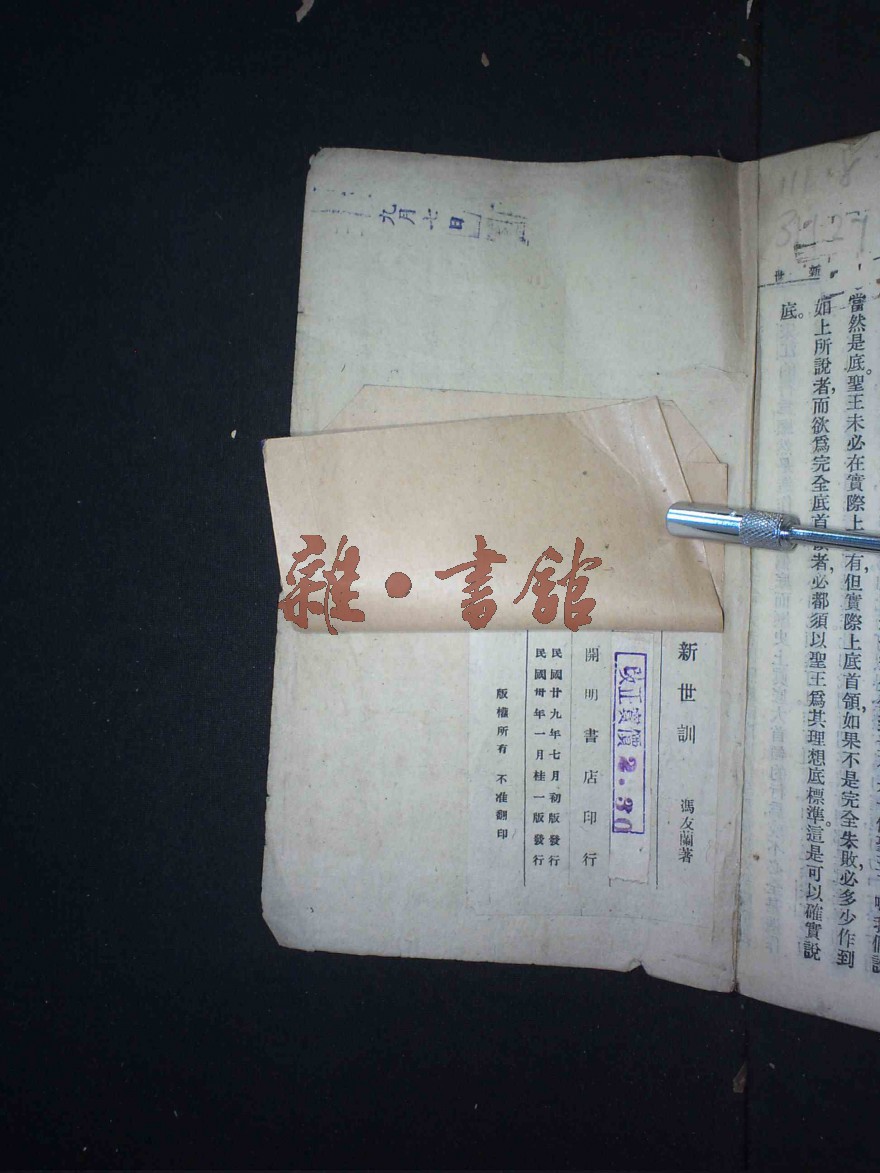 當然是底。聖王未必在實際上有,但實際上底首領,如果不是完全失敗,必多少作到
如上所說者,而欲爲完全底首領者,必都須以聖王爲其理想底標準。這是可以確實說
底。
九月七日
雜·書館
新世訓
馮友蘭著
改正實價2.30
開明書店印行
民國廿九年七月初版發行
民國卅年一月桂一版發行
版權所有 不准翻印